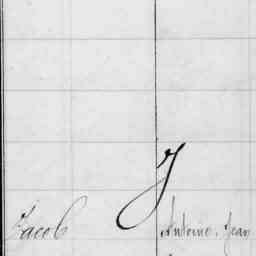 J
Jacob Antoine, Jean